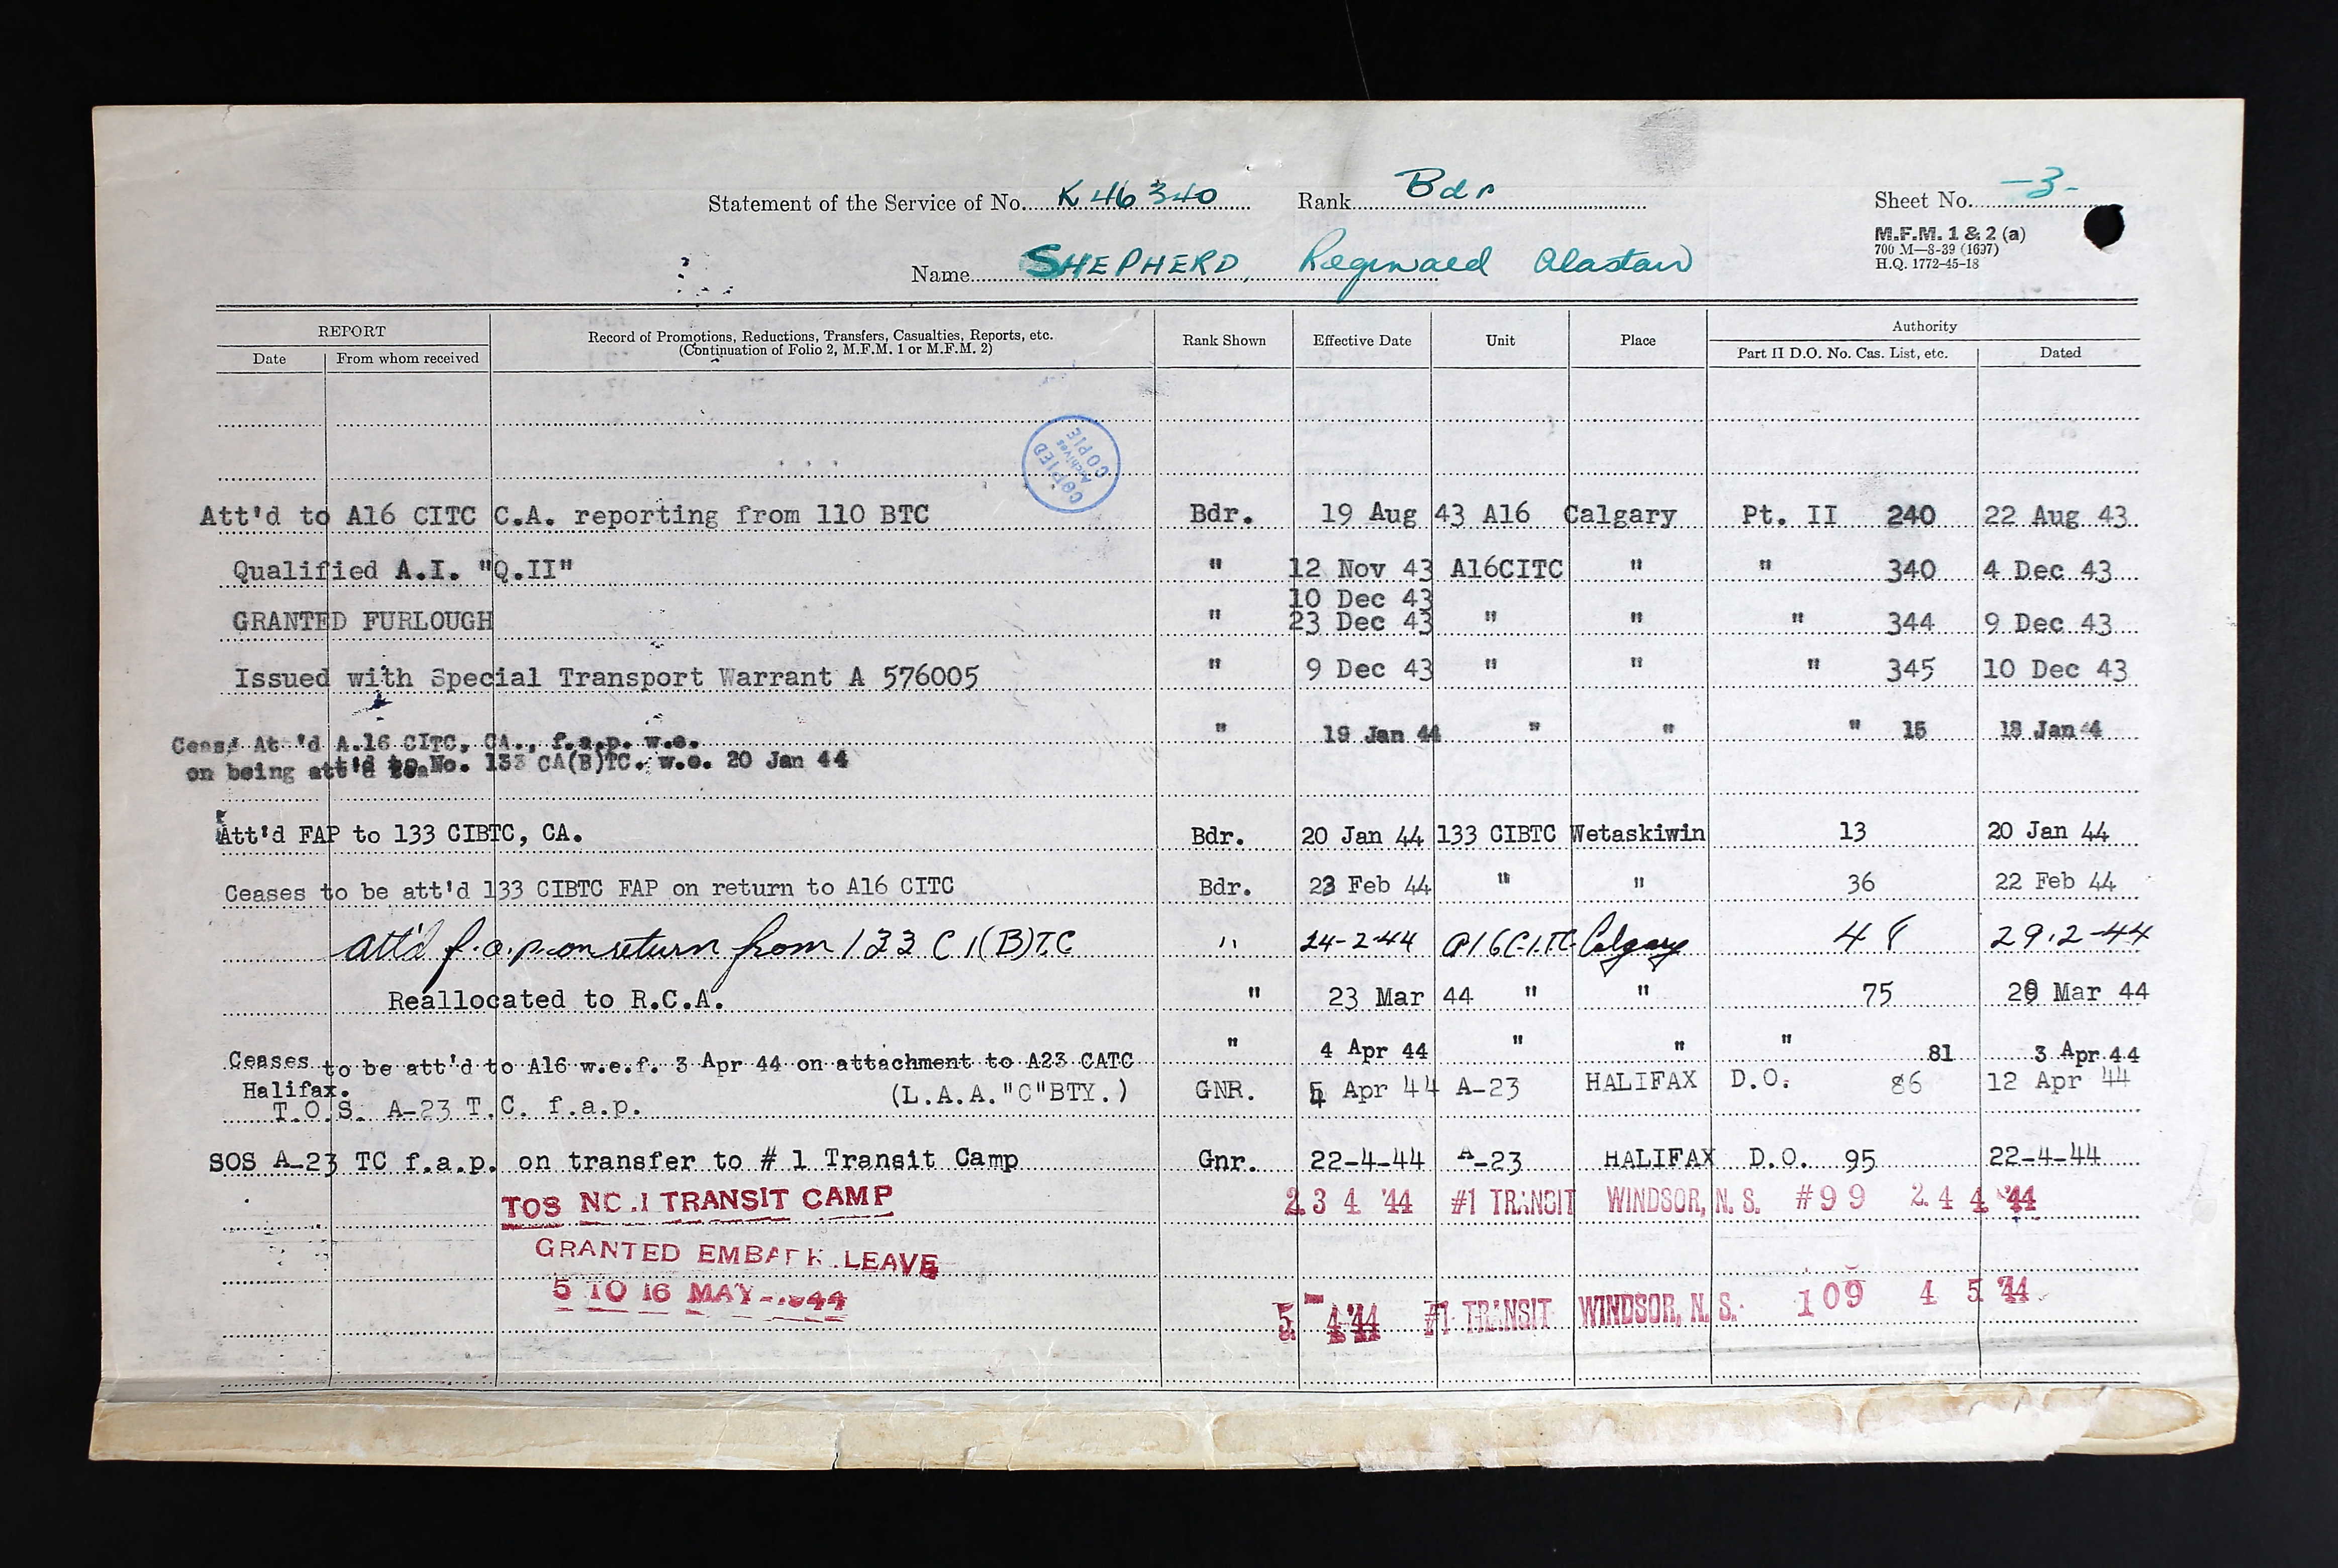 Statement of the Service of No. K 46340 Rank Bdr Sheet No. -3-
M.F.M. 1 & 2 (a)
700 M—8-39 (1697)
H.Q. 1772-45-18
Name SHEPHERD, Reginald Alastair
REPORT Record of Promotions, Reductions, Transfers, Casualties, Reports, etc. Rank Shown Effective Date Unit Place Authority
Date From whom received (Continuation of Folio 2, M.F.M. 1 or M.F.M. 2) Part II D.O. No. Cas. List, etc. Dated
COPIED
Archives
COPIE
Att'd to A16 CITC C.A. reporting from 110 BTC Bdr. 19 Aug 43 A16 Calgary Pt. II 240 22 Aug 43
Qualified A.I. "Q.II" " 12 Nov 43 A16CITC " " 340 4 Dec 43
10 Dec 43
GRANTED FURLOUGH " 23 Dec 43 " " " 344 9 Dec 43
Issued with Special Transport Warrant A 576005 " 9 Dec 43 " " " 345 10 Dec 43
" 19 Jan 44 " " " 15 18 Jan 4
Ceas At 'd A.16 CITC, CA., f.a.p. w.e.
on being att'd to No. 133 CA(B)TC. w.e. 20 Jan 44
Att'd FAP to 133 CIBTC, CA. Bdr. 20 Jan 44 133 CIBTC Wetaskiwin 13 20 Jan 44
Ceases to be att'd 133 CIBTC FAP on return to A16 CITC Bdr. 23 Feb 44 " " 36 22 Feb 44
att'd f.a.p. on return from 133 C I(B)T.C " 24-2-44 A16 C.I.T.C. Calgary 48 29.2-44
Reallocated to R.C.A. " 23 Mar 44 " " 75 29 Mar 44
Ceases to be att'd to A16 w.e.f. 3 Apr 44 on attachment to A23 CATC " 4 Apr 44 " " " 81 3 Apr 44
Halifax.
T.O.S. A-23 T.C. f.a.p. (L.A.A."C"BTY.) GNR. Apr 44 A-23 HALIFAX D.O. 86 12 Apr 44
SOS A-23 TC f.a.p. on transfer to # 1 Transit Camp Gnr. 22-4-44 A-23 HALIFAX D.O. 95 22-4-44
TOS NO.1 TRANSIT CAMP 23 4 '44 #1 TRANSIT WINDSOR, N.S. #99 24 4 '44
GRANTED EMBARK.LEAVE
5 TO 16 MAY -1944 5 4 '44 #1 TRANSIT WINDSOR, N.S. 109 4 5 '44